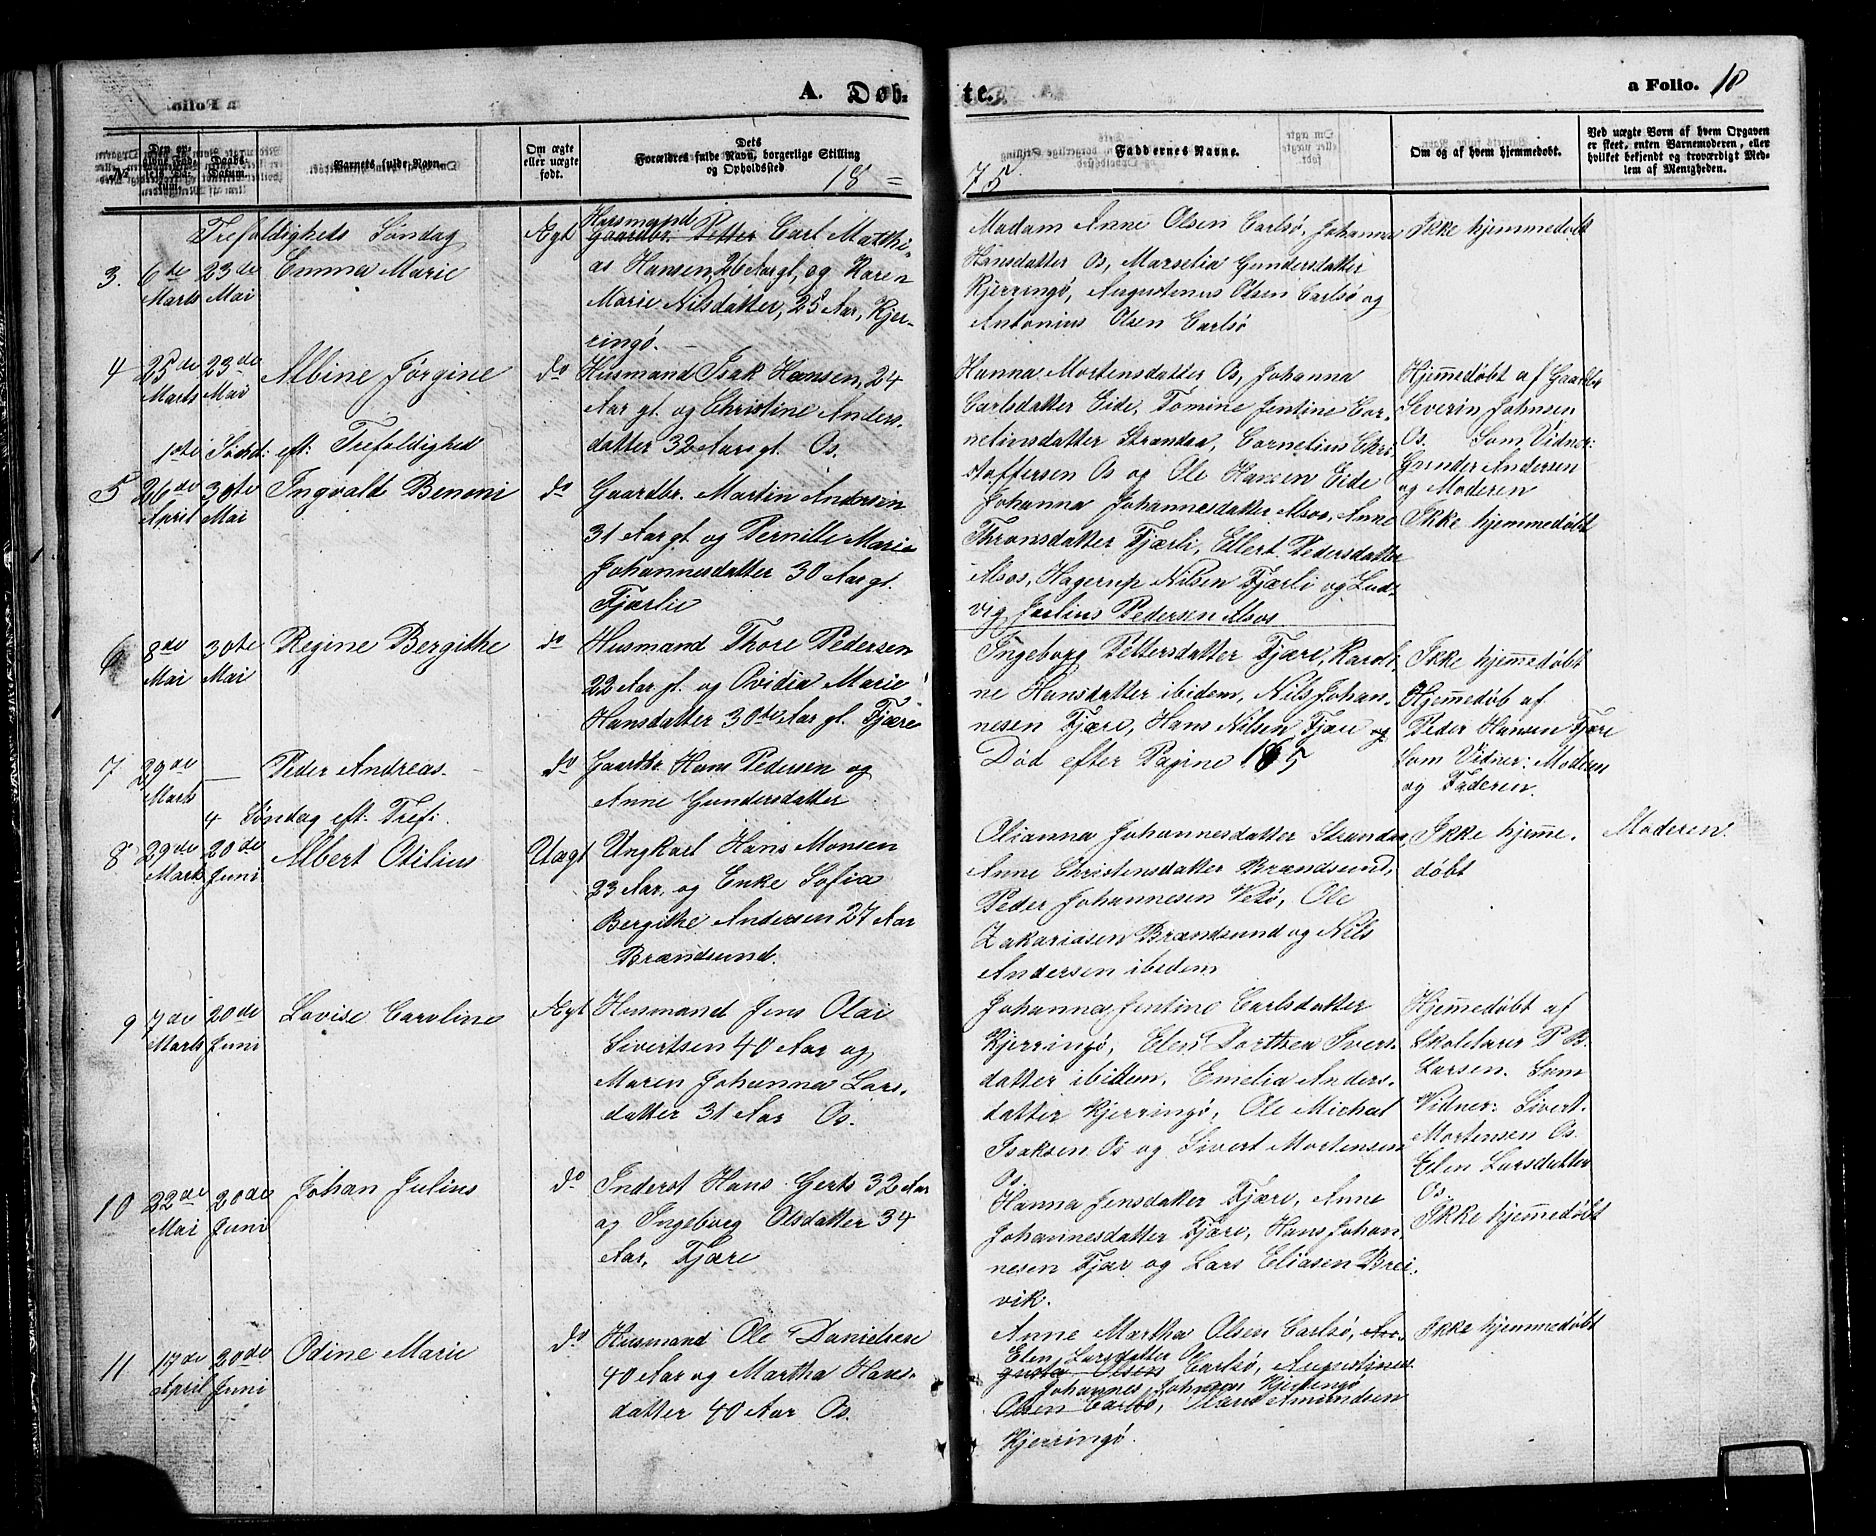 A. Døb-
te.
a Folio. 18
No.
Døbs-
Datum.
Barnets fulde Navn.
Om ægte
eller uægte
født.
Dets
Forældres fulde Navn, borgerlige Stilling
og Opholdssted
18 =
75
Faddernes Navne.
Om og af hvem hjemmedøbt.
Ved uægte Børn af hvem Opgaven
er skeet, enten Barnemoderen, eller
hvilket bekjendt og troværdigt Med-
lem af Menigheden.
Trefoldigheds Søndag
3.
6te
Marts
23de
Mai
Emma Marie
Ægt
Husmand
Gaardbr. Petter Carl Matthi-
as Hansen, 26 Aar gl, og Karen
Marie Nilsdatter, 25 Aar, Kjer-
ringö.
Madam Anne Olsen Carlsö, Johanna
Hansdatter Os, Marselia Gundersdatter
Kjerringö, Augustinus Olsen Carlsö og
Antonius Olsen Carlsö
Ikke hjemmedøbt
4
25de
Marts
23de
Mai
Albine Jørgine
do
Husmand Isak Hansen, 24
Aar gl. og Christine Anders-
datter 32 Aar gl. Os.
Hanna Mortensdatter Os, Johanna
Carlsdatter Eide, Tomine Jentine Cor-
neliusdatter Strandea, Cornelius Chri-
stoffersen Os og Ole Hansen Eide
Hjemmedøbt af Gaardbr
Severin Johnsen
Os. Som Vidner:
Gunder Andersen
og Moderen
1ste Søndt. eft: Trefoldighed
5
26de
April
30te
Mai
Ingvald Benoni
do
Gaardbr. Martin Andersen
31 Aar gl. og Pernille Marie
Johannesdatter 30 Aar gl.
Fjærlie
Johanna Johannesdatter Alsos, Anne
Thronsdatter Fjærli, Ellert Pedersdatter
Alsos, Hagerup Nilsen Fjærli og Lud-
vig Julius Pedersen Alsos
Ikke hjemmedøbt
6
8de
Mai
30te
Mai
Regine Bergithe
do
Husmand Thore Pedersen
22 Aar gl. og Ovidia Marie
Hansdatter 30te Aar gl. Fjære
Ingeborg Pettersdatter Fjære, Karoli-
ne Hansdatter ibidem, Nils Johan-
nesen Fjære, Hans Nilsen Fjære og
Ikke hjemmedøbt
7
29de
Marts
—
Peder Andreas.
do
Gaardbr. Hans Pedersen og
Anne Gundersdatter
Død efter Pagine 165
Hjemmedøb af
Peder Hansen Fjære
Som Vidner: Moderen
og Faderen.
4 Søndag eft: Tref:
8
29de
Marts
20de
Juni
Albert Otilius
Uægt
Ungkarl Hans Monsen
23 Aar, og Enke Sofia
Bergithe Andersen 27 Aar
Brændsund.
Olianna Johannesdatter Strandea,
Anne Christensdatter Brændsund,
Peder Johannesen Vesö, Ole
Zakariasen Brændsund og Nils
Andersen ibidem
Ikke hjemme-
døbt
Moderen
9
7de
Marts
20de
Juni
Lovise Caroline
Ægt
Husmand Jens Olai
Sivertsen 40 Aar og
Maren Johanna Lars-
datter 31 Aar Os.
Johanna Jentine Carlsdatter
Kjerringö, Elen Dorthea Ivers-
datter ibidem, Emelia Anders-
datter Kjerringö, Ole Michal
Isaksen Os og Sivert Mortensen
Os.
Hjemmedøbt af
Skolelærer P B.
Larsen. Som
Vidner: Sivert
Mortensen Os.
Elen Larsdatter
Os
10
22de
Mai
20de
Juni
Johan Julius
do
Inderst Hans Gerts 32 Aar
og Ingeborg Olsdatter 34
Aar, Fjære
Hanna Jensdatter Fjære, Anne
Johannesdatter Fjære, Hans Johan-
nesen Fjær og Lars Eliasen Brei-
vik.
Ikke hjemmedøbt
11
17de
April
20de
Juni
Odine Marie
do
Husmand Ole Danielsen
40 Aar og Martha Hans-
datter 40 Aar Os.
Anne Martha Olsen Carlsö, Au-
Elen Larsdatter Os
gusta Olsen Carlsö, Augustinus
Johannes Johnsen Kjerringö
Olsen Carlsö, Hans Amundsen
Kjerringö.
Ikke hjemmedøbt